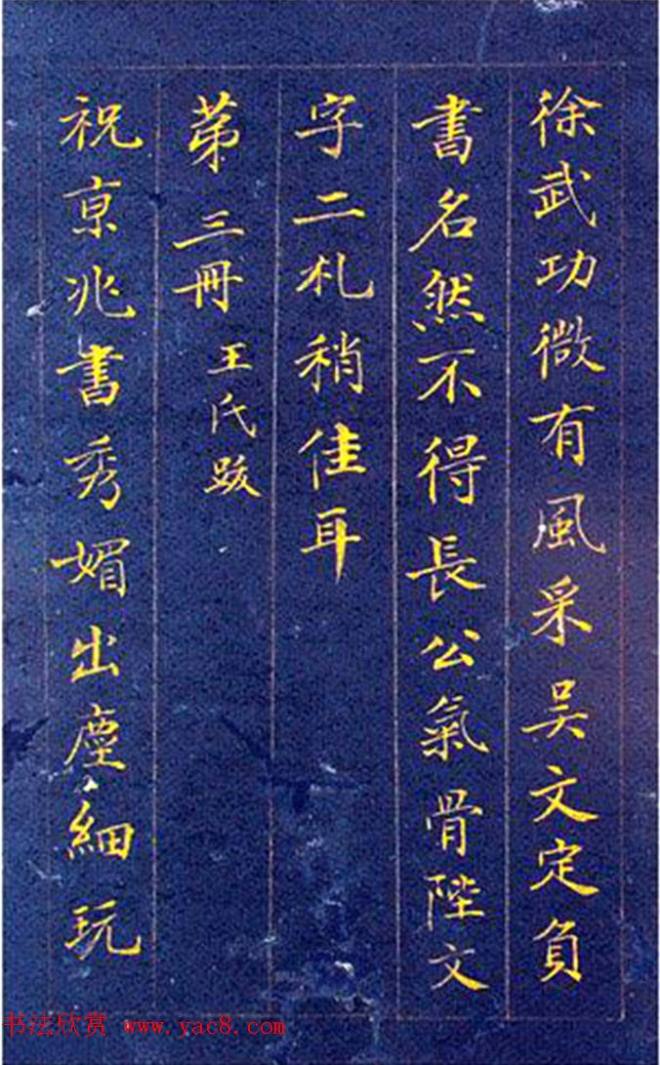 徐武功微有風采吴文定負
書名然不得長公氣骨陛文
字二札稍佳耳
苐三冊 王氏跋
祝亰兆書秀媚出塵細玩
书法欣赏 www.yac8.com